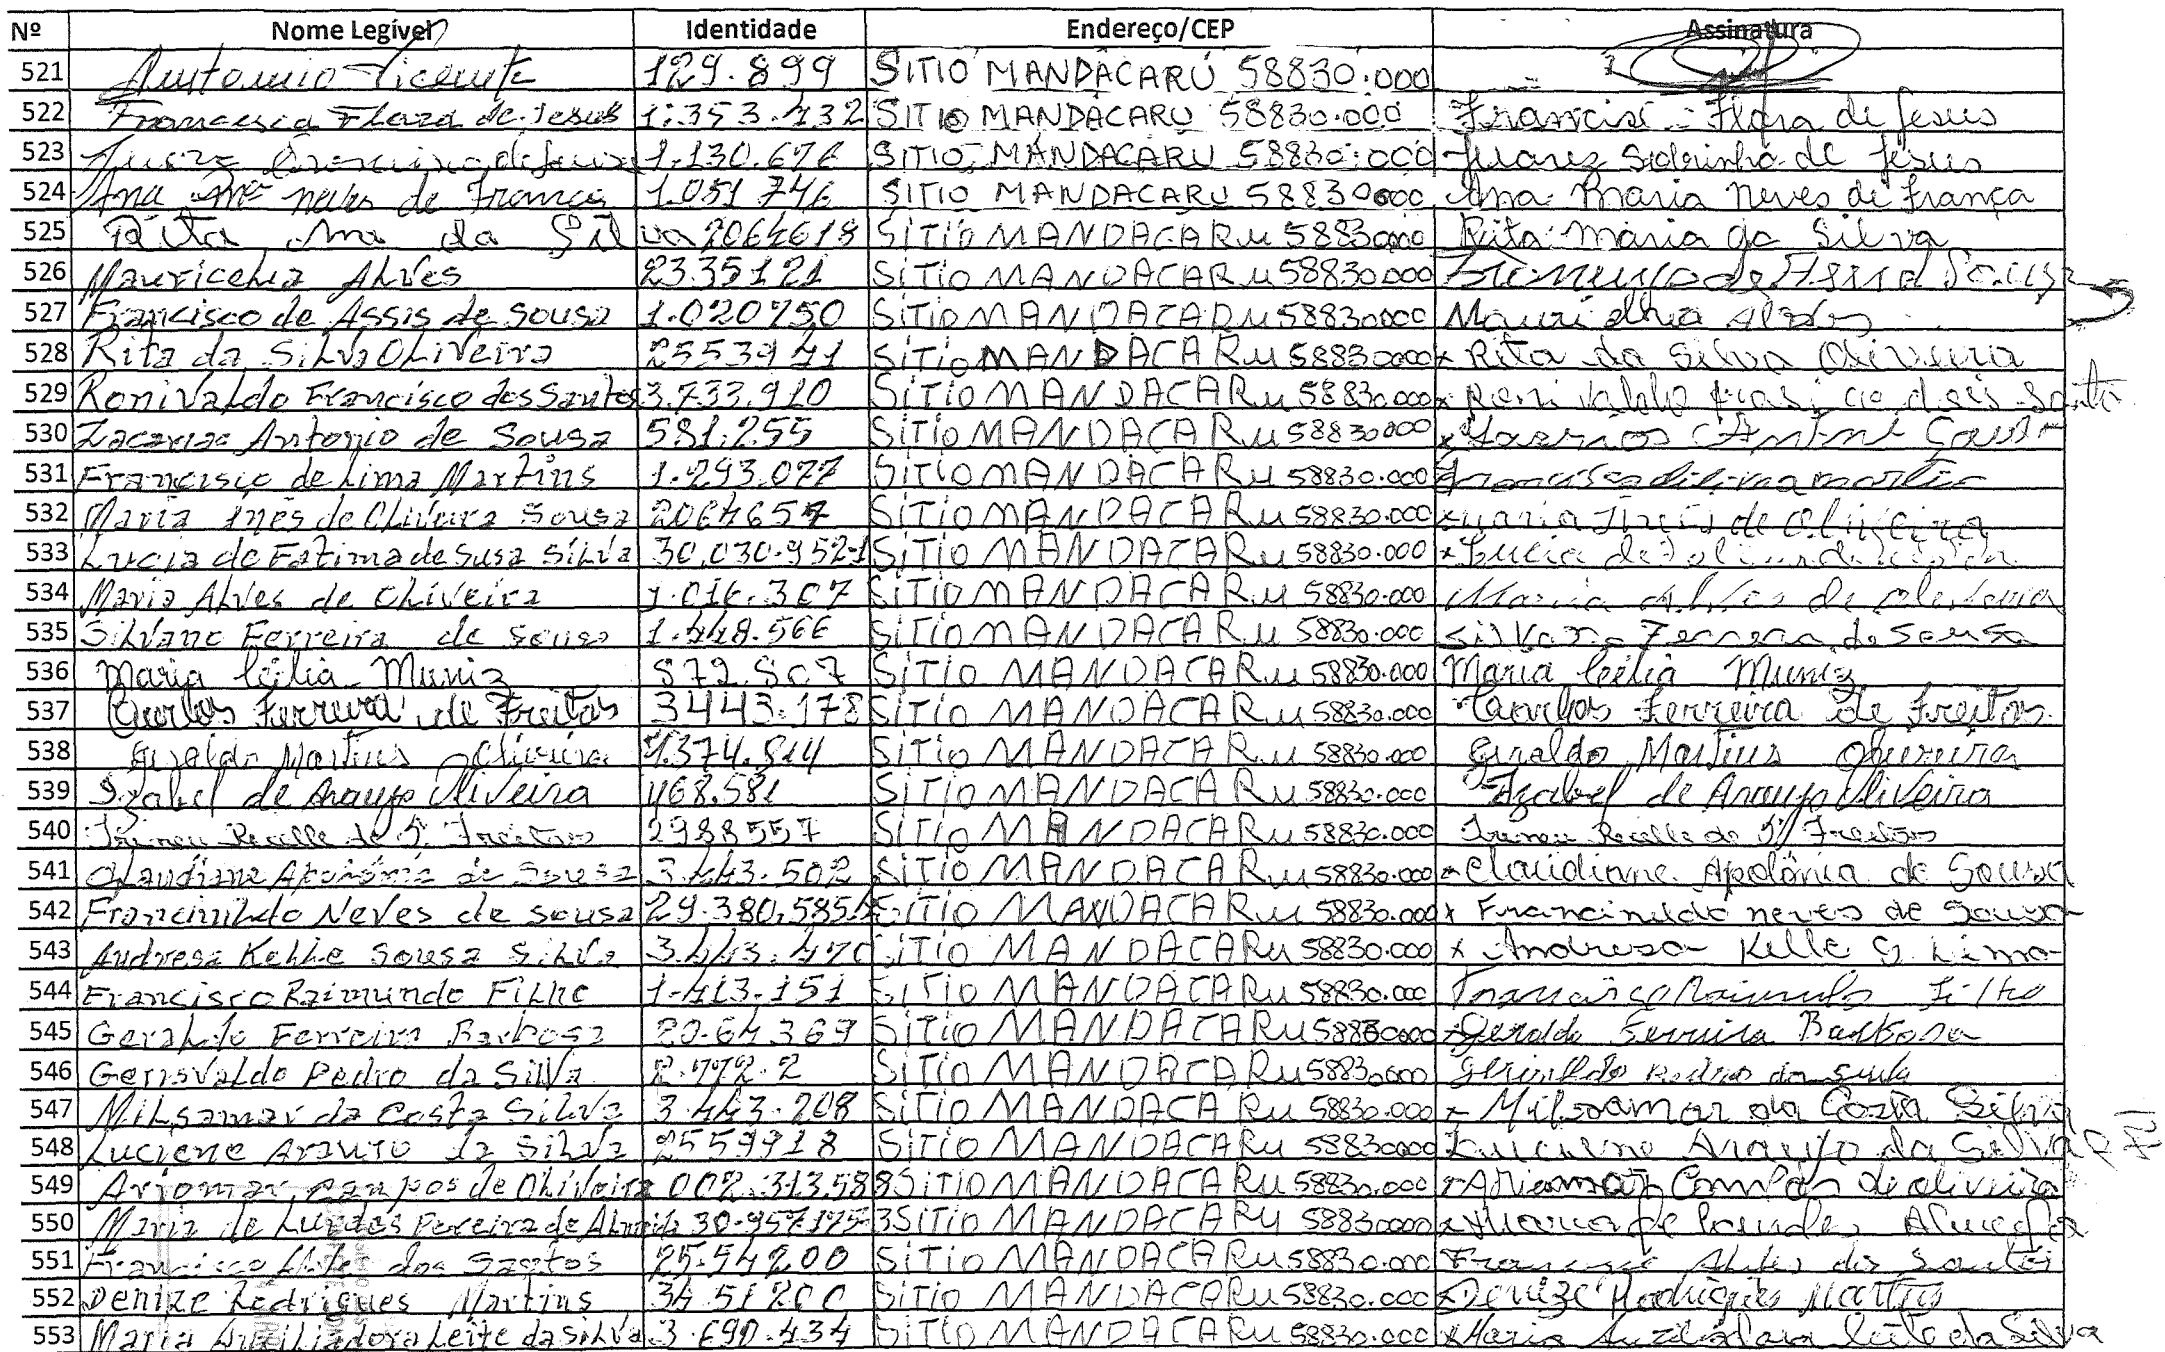 Nº Nome Legível Identidade Endereço/CEP Assinatura
521 Antonio Vicente 129.899 SITIO MANDACARÚ 58830.000
522 Francisca Flora de Jesus 1.353.432 SITIO MANDACARÚ 58830.000 Flora de Jesus
523 1.130.676 SITIO MANDACARÚ 58830.000 Juarez Sobrinho de Jesus
524 Ana Mª neves de França 1.051 746 SITIO MANDACARÚ 58830000 Ana Maria Neves de França
525 Rita Ma da Silva 2064618 SiTiO MANDACARu 58830000 Rita Maria da Silva
526 Mauricelia Alves 2335121 SiTiO MANDACARu 58830000
527 Francisco de Assis de Sousa 1.020750 SiTiO MANDACARu 58830000
528 Rita da Silva Oliveira 2553941 SiTiO MANDACARu 58830000 x Rita da Silva Oliveira
529 Ronivaldo Francisco dos Santos 3.733.910 SiTiO MANDACARu 58830.000 x
530 Zacarias Antonio de Sousa 581.255 SiTiO MANDACARu 58830000 x
531 Francisco de Lima Martins 1.293.077 SiTiO MANDACARu 58830.000
532 Maria Inês de Oliveira Sousa 2064657 SiTiO MANDACARu 58830.000 x Maria Inês de Oliveira
533 Lucia de Fatima de Susa Silva 30.030.952-1 SiTiO MANDACARu 58830.000 x Lucia de
534 Maria Alves de Oliveira 1.016.307 SiTiO MANDACARu 58830.000 Maria Alves de
535 Silvano Ferreira de Sousa 1.448.566 SiTiO MANDACARu 58830.000 Silvano Ferrera de Sousa
536 Maria Célia Muniz 872.507 SiTiO MANDACARu 58830.000 Maria Célia Muniz
537 Carlos Ferreira de Freitas 3443.178 SiTiO MANDACARu 58830.000 Carlos Ferreira de Freitas
538 Giraldo Martins Oliveira 1.374.814 SiTiO MANDACARu 58830.000 Giraldo Martins Oliveira
539 Izabel de Araujo Oliveira 468.581 SiTiO MANDACARu 58830.000 Izabel de Araujo Oliveira
540 2988557 SiTiO MANDACARu 58830.000
541 Claudiane Apolônia de Sousa 3.443.502 SiTiO MANDACARu 58830.000 x Claudiane Apolônia de Sousa
542 Francinildo Neves de Sousa 29.380.585 SiTiO MANDACARu 58830.000 x Francinildo neves de Sousa
543 Andresa Kelle Sousa Silva 3.443.470 SiTiO MANDACARu 58830.000 x Andresa Kelle S. Lima
544 Francisco Raimundo Filho 1.413.151 SiTiO MANDACARu 58830.000 Raimundo Filho
545 Geraldo Ferreira Barbosa 20.64369 SiTiO MANDACARu 58830000 x Geraldo Ferreira Barbosa
546 Gerisvaldo Pedro da Silva 2.772.2 SiTiO MANDACARu 58830000
547 Milsamar da Costa Silva 3.443.208 SiTiO MANDACARu 58830.000 x Milsamar da Costa Silva
548 Luciene Araujo da Silva 2559918 SiTiO MANDACARu 58830000 Luciene Araujo da Silva
549 Ariomar campos de Oliveira 002.313.588 SiTiO MANDACARu 58830.000 x Ariomar Campos de oliveira
550 Maria de Lurdes Pereira de Almeida 30.957175-3 SiTiO MANDACARu 58830000 x Maria de Lourdes
551 Francisco Alves dos Santos 25.54200 SiTiO MANDACARu 58830.000 Alves dos Santos
552 Denize Rodrigues Martins 3451200 SiTiO MANDACARu 58830.000 x Denize Rodrigues Martins
553 Maria Auxiliadora Leite da Silva 3.690.434 SiTiO MANDACARu 58830.000 x Maria Auxiliadora leite da Silva